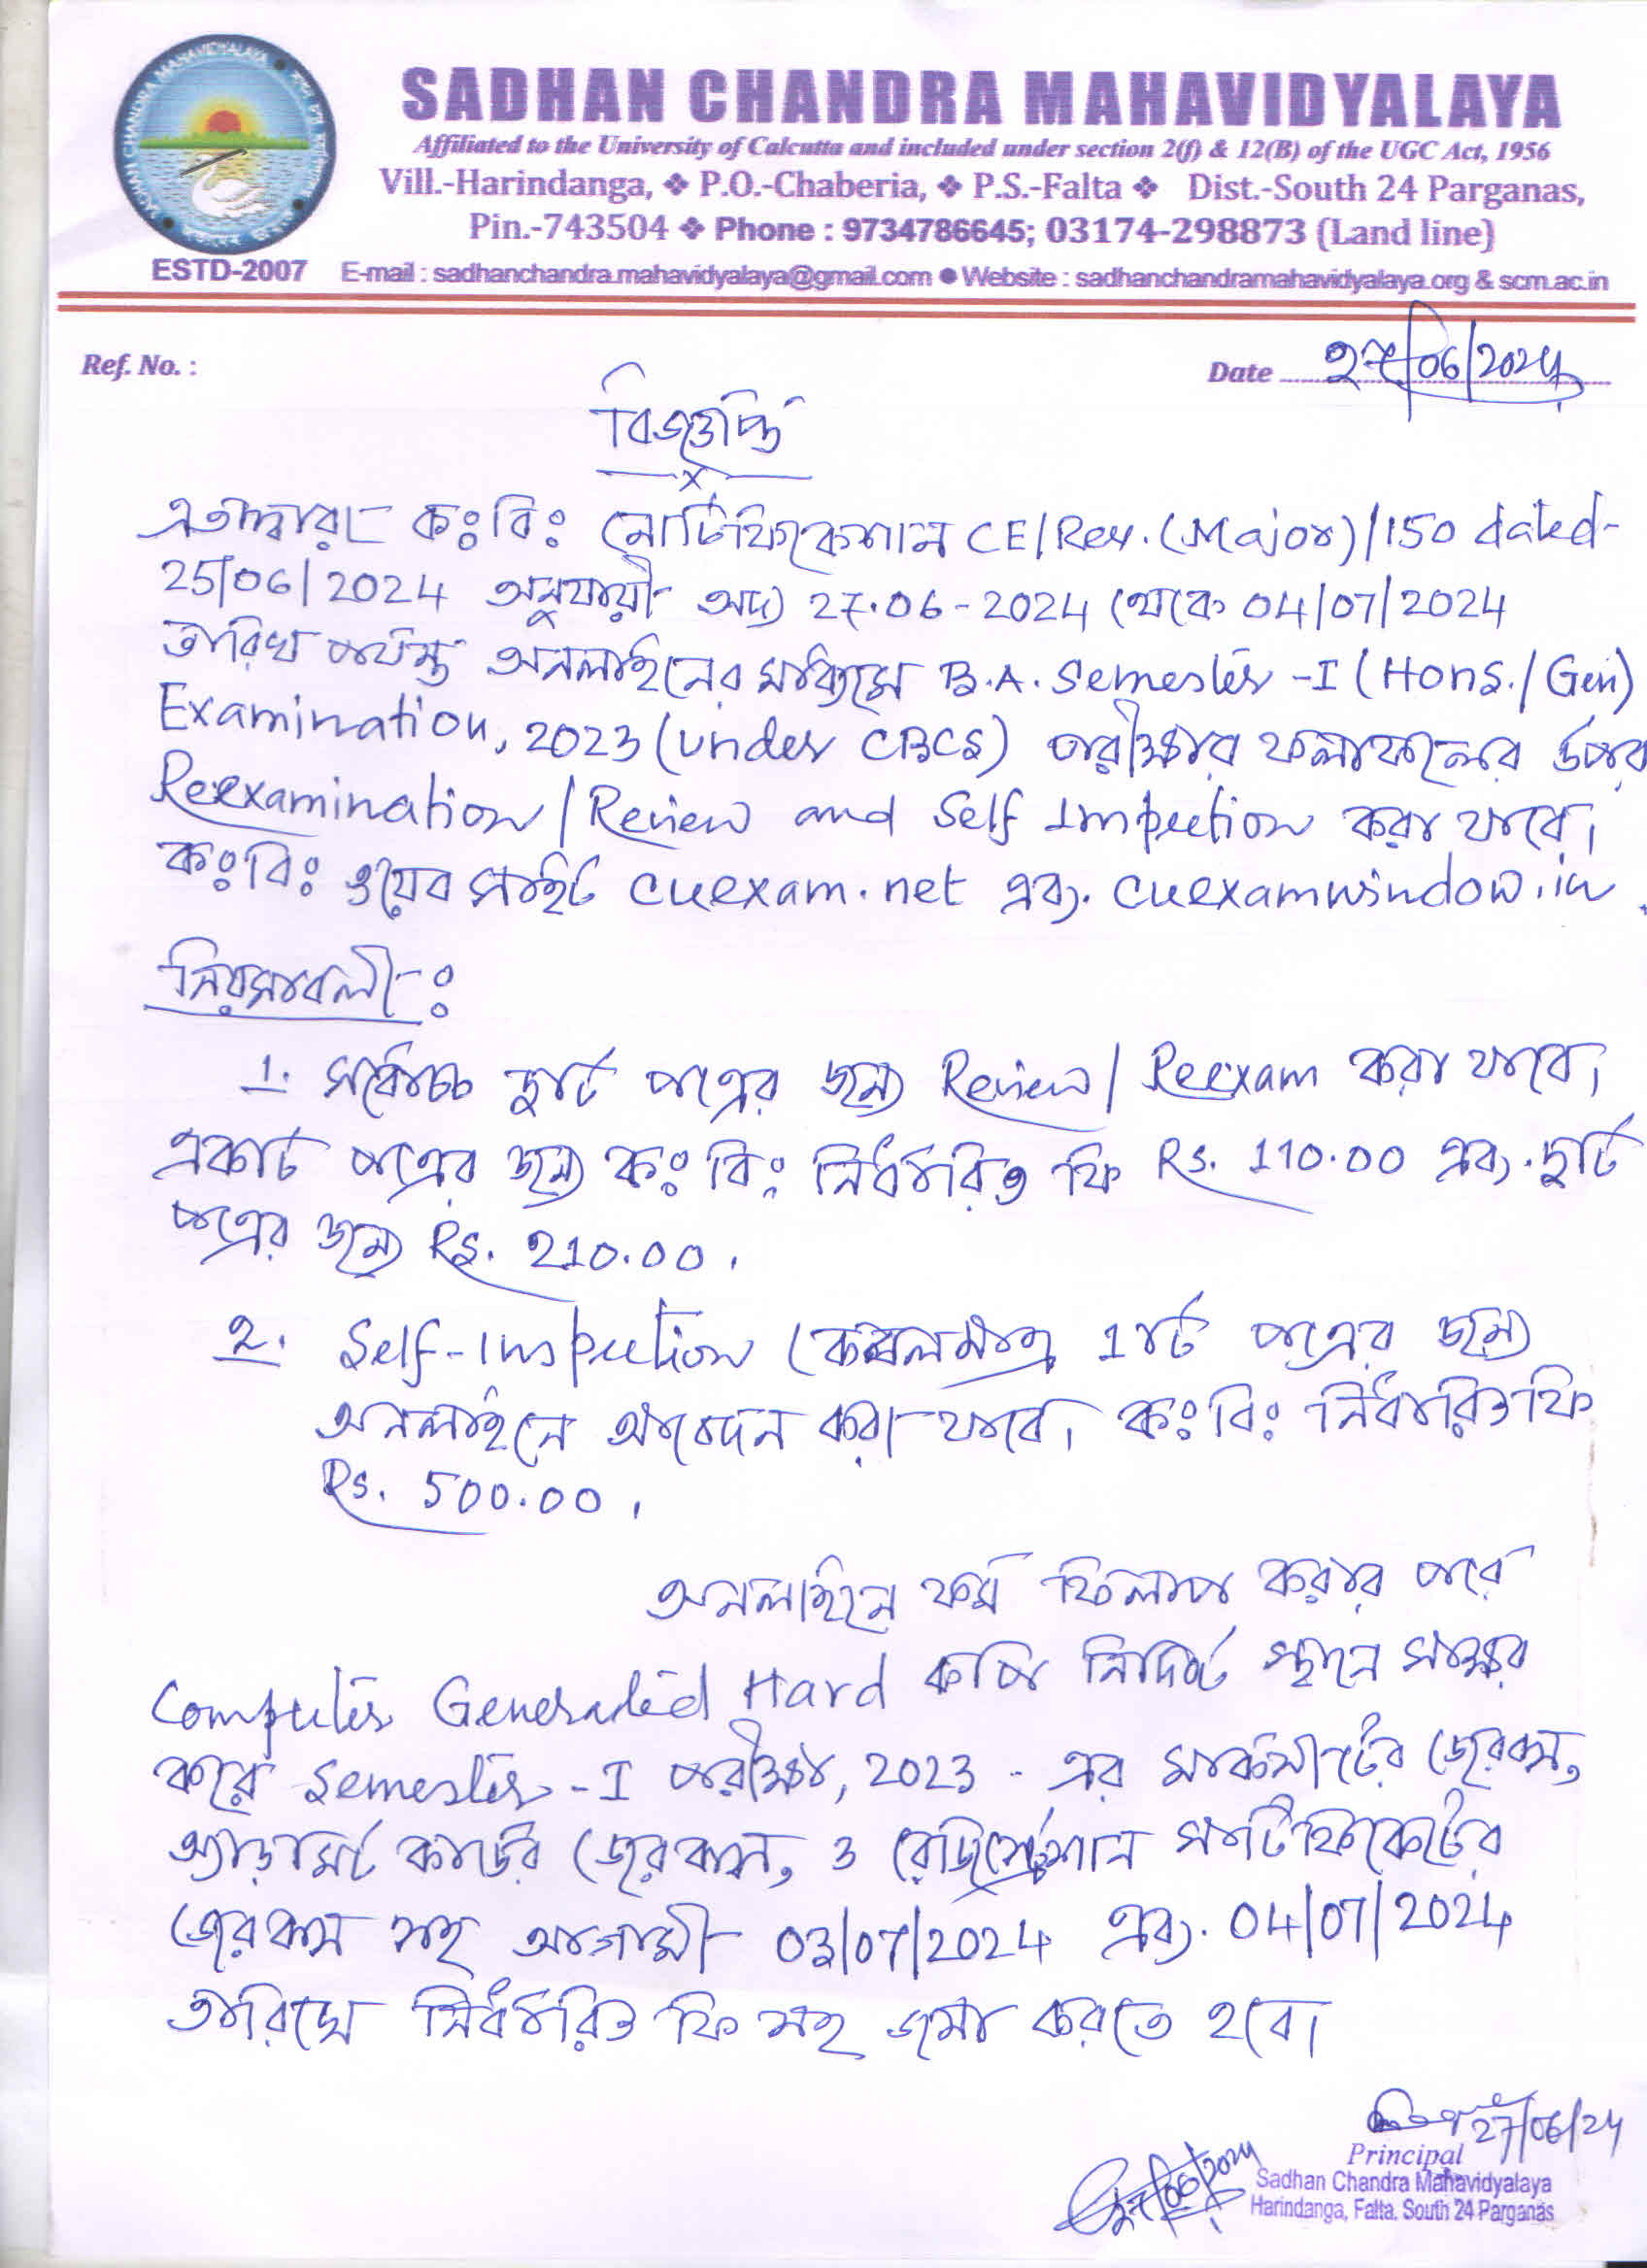 SADHAN CHANDRA MAHAVIDYALAYA
Affiliated to the University of Calcutta and included under section 2(f) & 12(B) of the UGC Act, 1956
Vill.-Harindanga, ❖ P.O.-Chaberia, ❖ P.S.-Falta ❖ Dist.-South 24 Parganas,
Pin.-743504 ❖ Phone : 9734786645; 03174-298873 (Land line)
ESTD-2007 E-mail : sadhanchandra.mahavidyalaya@gmail.com ● Website : sadhanchandramahavidyalaya.org & scm.ac.in
Ref. No. : Date 27/06/2024
বিজ্ঞপ্তি
এতদ্দ্বারা কঃবিঃ নোটিফিকেশান CE/Rev. (Major)/150 dated-
25/06/2024 অনুযায়ী অদ্য 27.06-2024 থেকে 04/07/2024
তারিখ পর্যন্ত অনলাইনের মাধ্যমে B.A. Semester -I (Hons./Gen)
Examination, 2023 (under CBCS) পরীক্ষার ফলাফলের উপর
Reexamination/Review and Self Inspection করা যাবে।
কঃবিঃ ওয়েব সাইট cuexam.net এবং cuexamwindow.in
নিয়মাবলী ঃ
1. সর্বোচ্চ দুটি পত্রের জন্য Review/Reexam করা যাবে।
একটি পত্রের জন্য কঃ বিঃ নির্ধারিত ফি Rs. 110.00 এবং দুটি
পত্রের জন্য Rs. 210.00.
2. Self-Inspection কেবলমাত্র 1টি পত্রের জন্য
অনলাইনে আবেদন করা যাবে। কঃবিঃ নির্ধারিত ফি
Rs. 500.00.
অনলাইনে ফর্ম ফিলাপ করার পরে
Computer Generated Hard কপি নির্দিষ্ট স্থানে সাক্ষর
করে Semester-I পরীক্ষা, 2023 - এর মার্কসীটের জেরক্স,
অ্যাডমিট কার্ডের জেরক্স, ও রেজিস্ট্রেশান সার্টিফিকেটের
জেরক্স সহ আগামী 03/07/2024 এবং 04/07/2024
তারিখে নির্ধারিত ফি সহ জমা করতে হবে।
27/06/24
Principal
27/06/2024 Sadhan Chandra Mahavidyalaya
Harindanga, Falta. South 24 Parganas